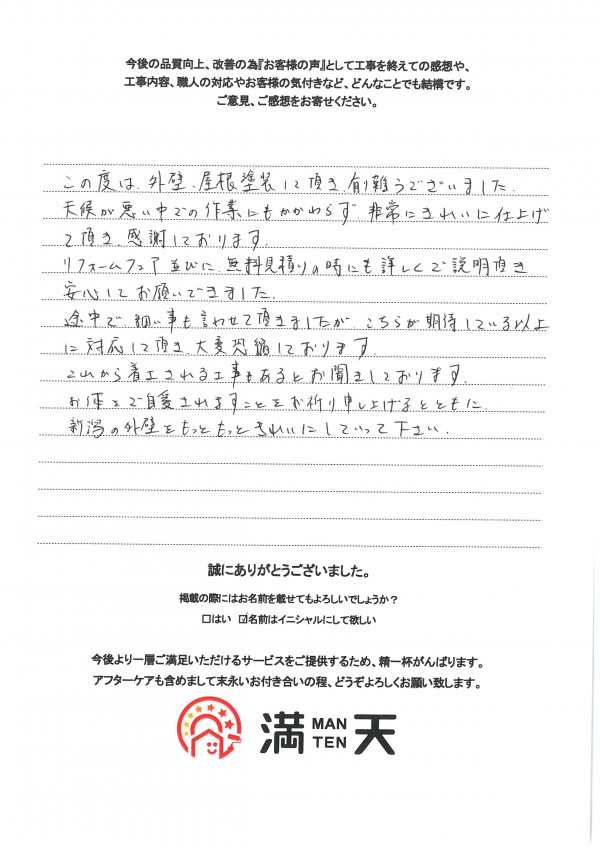 今後の品質向上、改善の為『お客様の声』として工事を終えての感想や、
工事内容、職人の対応やお客様の気付きなど、どんなことでも結構です。
ご意見、ご感想をお寄せください。
この度は、外壁、屋根塗装して頂き、有り難うございました。
天候が悪い中での作業にもかかわらず、非常にきれいに仕上げ
て頂き、感謝しております。
リフォームフェア並びに、無料見積りの時にも詳しくご説明頂き
安心してお願いできました。
途中で、細い事も言わせて頂きましたが、こちらが期待している以上
に対応して頂き、大変恐縮しております。
これから着工される工事もあるとお聞きしております。
お体をご自愛されますことをお祈り申し上げるとともに、
新潟の外壁をもっともっときれいにしていって下さい。
誠にありがとうございました。
掲載の際にはお名前を載せてもよろしいでしょうか？
□はい ☑名前はイニシャルにして欲しい
今後より一層ご満足いただけるサービスをご提供するため、精一杯がんばります。
アフターケアも含めまして末永いお付き合いの程、どうぞよろしくお願い致します。
満 MAN TEN 天